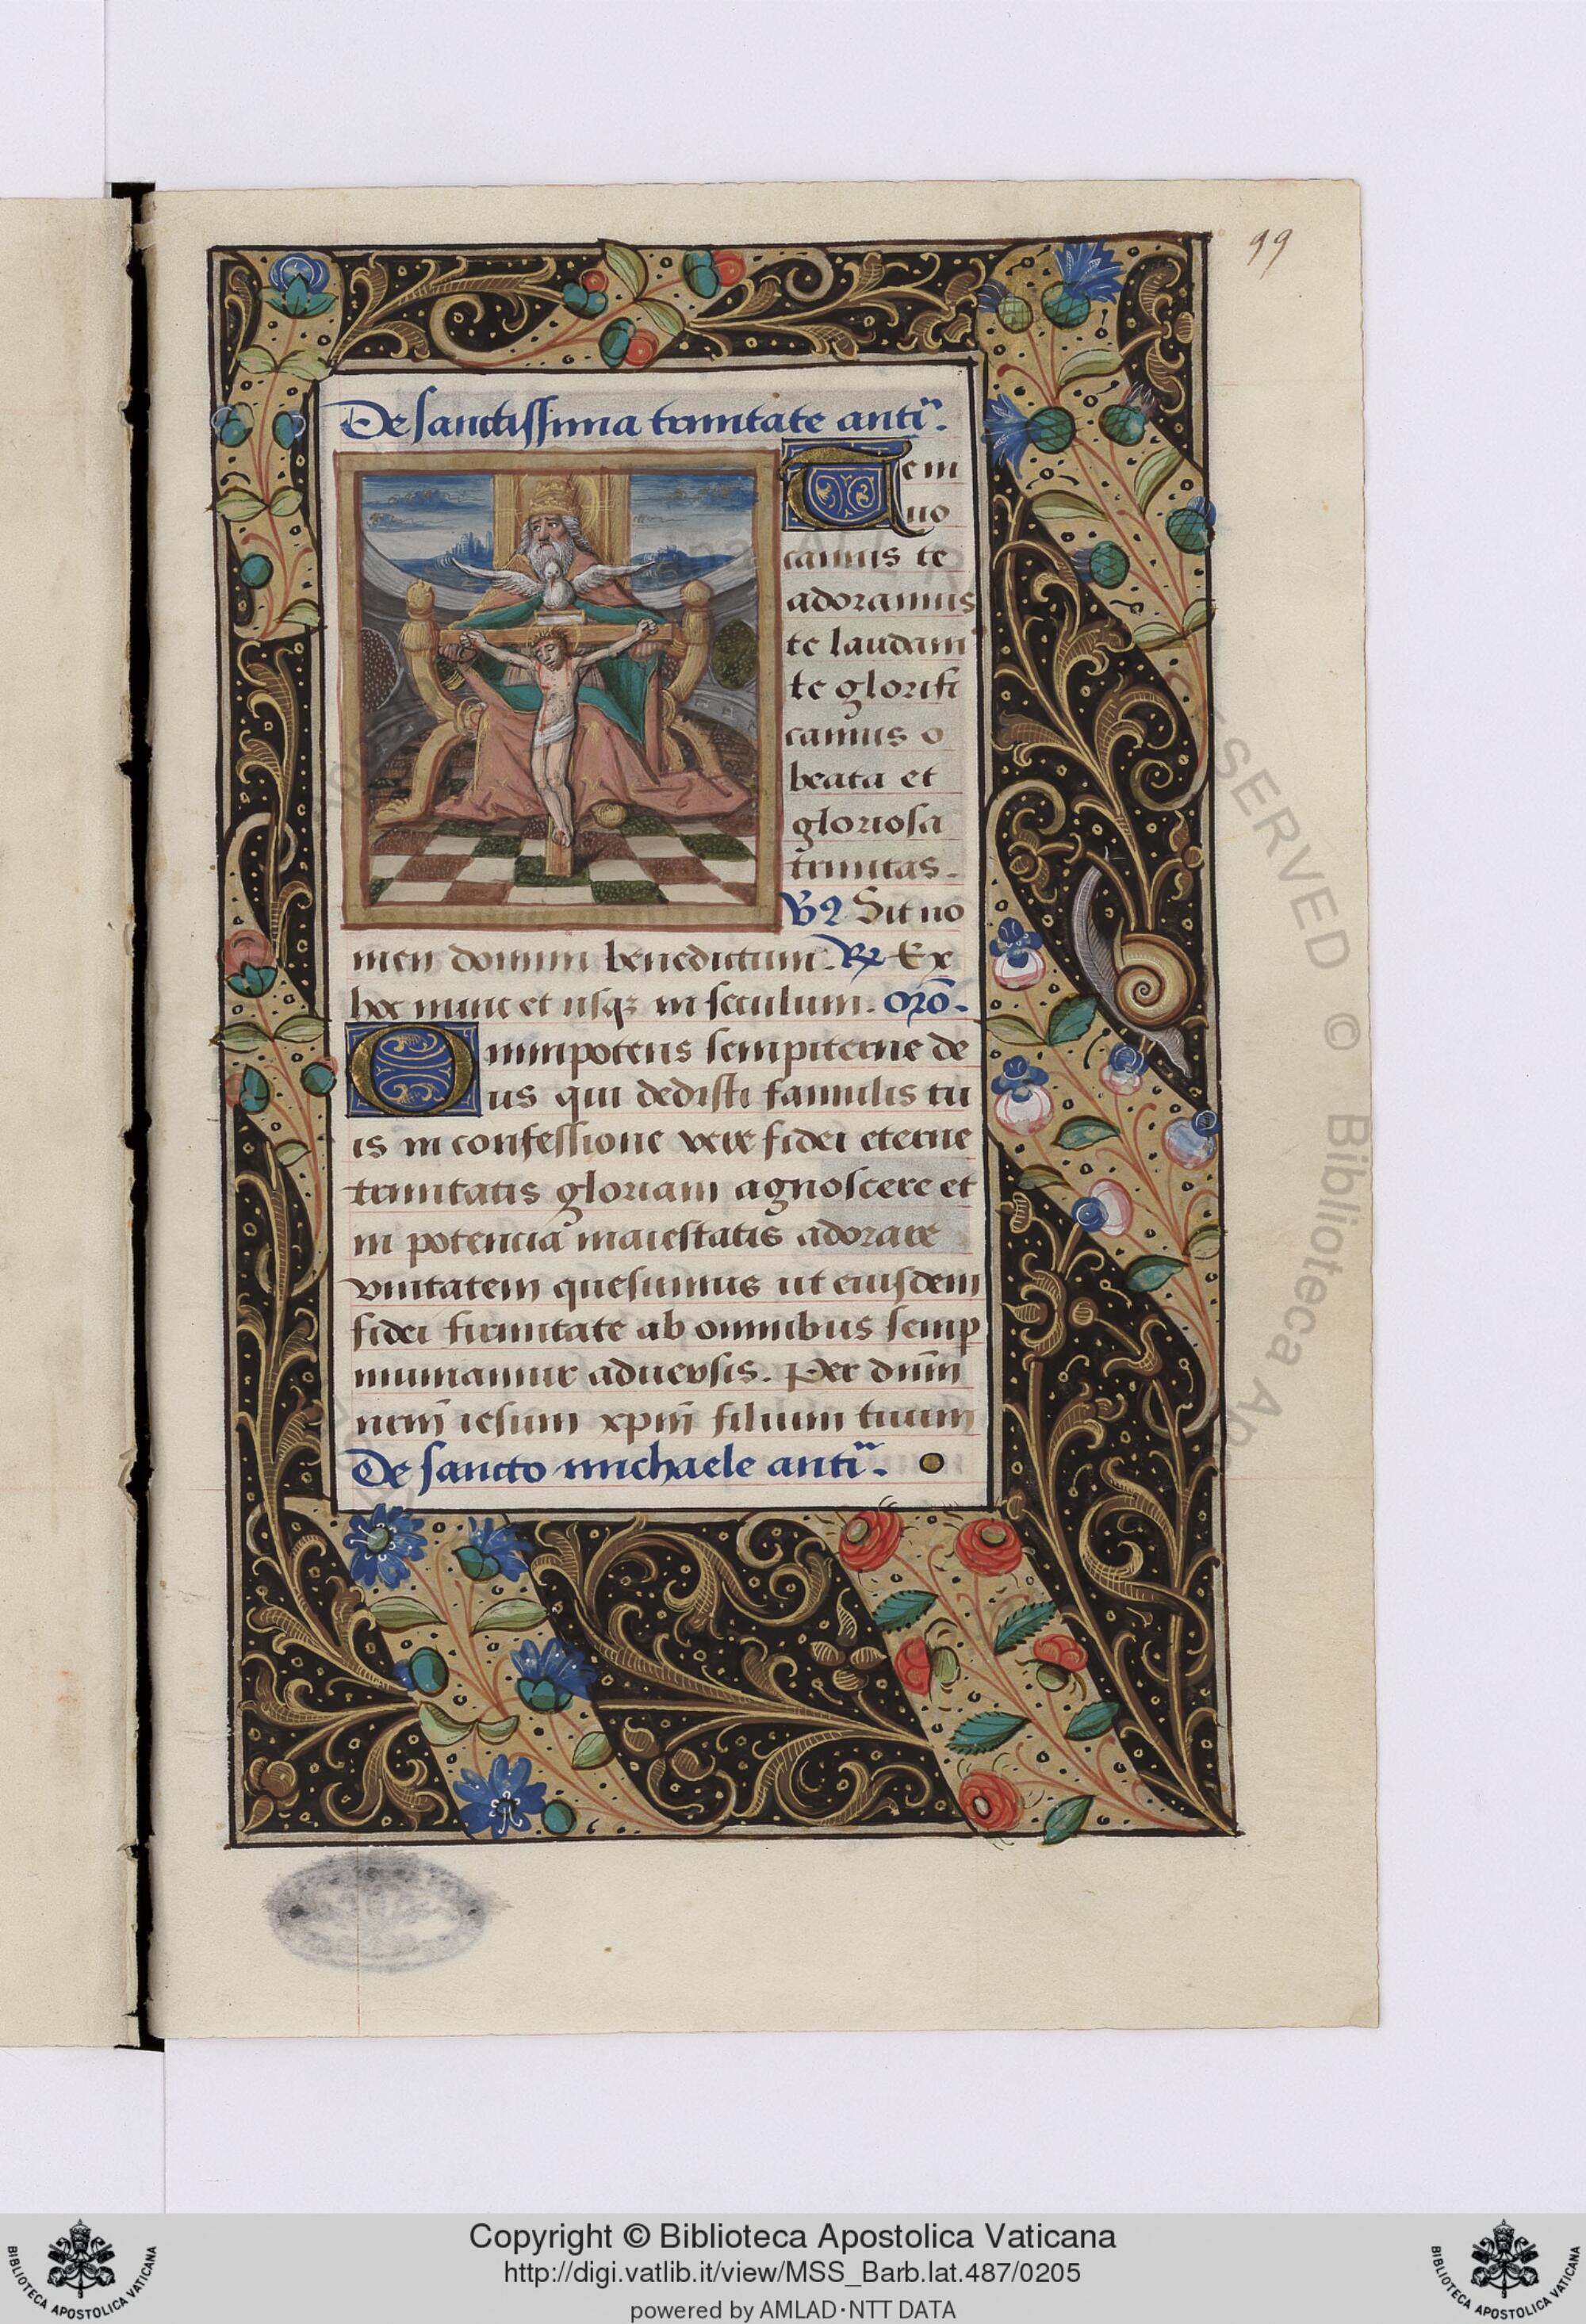 99
De sanctissima trinitate anti͠.
Te in
uo
camus te
adoramus
te laudam
te glorifi
camus o
beata et
gloriosa
trinitas.
V Sit no
men domini benedictum. ℟ Ex
hoc nunc et usqꝫ in seculum. Orõ.
Omnipotens sempiterne de
us qui dedisti famulis tu
is in confessione vere fidei eterne
trinitatis gloriam agnoscere et
in potencia maiestatis adorare
vnitatem quesumus ut eiusdem
fidei firmitate ab omnibus semp
muniamur aduersis. Per dñm
nrm̃ iesum xpm̃ filium tuum
De sancto michaele anti͠.
SERVED © Biblioteca Ap
Copyright © Biblioteca Apostolica Vaticana
http://digi.vatlib.it/view/MSS_Barb.lat.487/0205
powered by AMLAD·NTT DATA
BIBLIOTECA APOSTOLICA VATICANA
BIBLIOTECA APOSTOLICA VATICANA